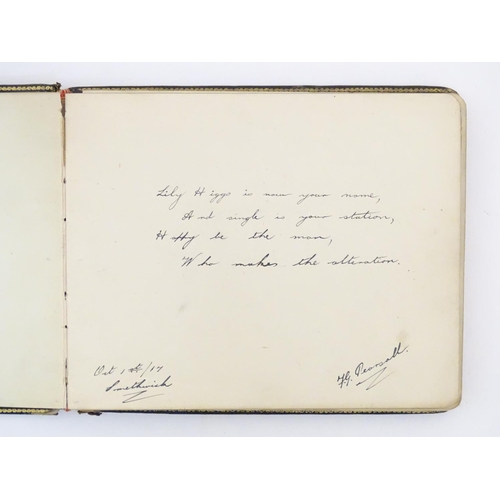 Lily Higgs is now your name,
And single is your station,
H be the man,
Who makes the alteration.
Oct 1st/17
Smethwick
F.G. Pearsall.